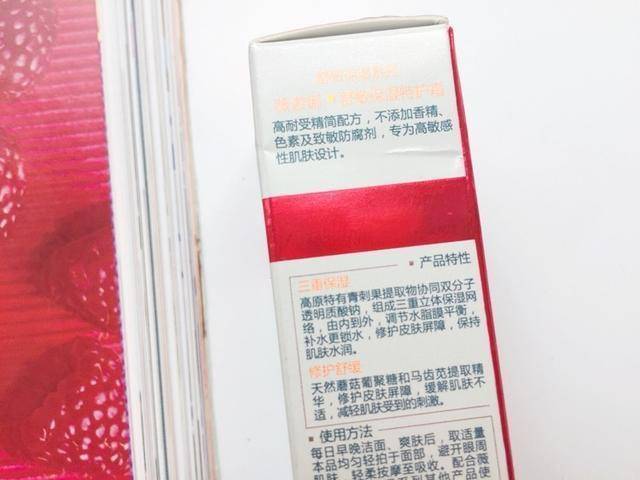 舒敏保湿特护霜
高耐受精简配方，不添加香精、
色素及致敏防腐剂，专为高敏感
性肌肤设计。
产品特性
三重保湿
高原特有青刺果提取物协同双分子
透明质酸钠，组成三重立体保湿网
络，由内到外，调节水脂膜平衡，
补水更锁水，修护皮肤屏障，保持
肌肤水润。
修护舒缓
天然蘑菇葡聚糖和马齿苋提取精
华，修护皮肤屏障，缓解肌肤不
适，减轻肌肤受到的刺激。
使用方法
每日早晚洁面、爽肤后，取适量
本品均匀轻拍于面部，避开眼周
肌肤，轻柔按摩至吸收。配合薇
系列其他产品使